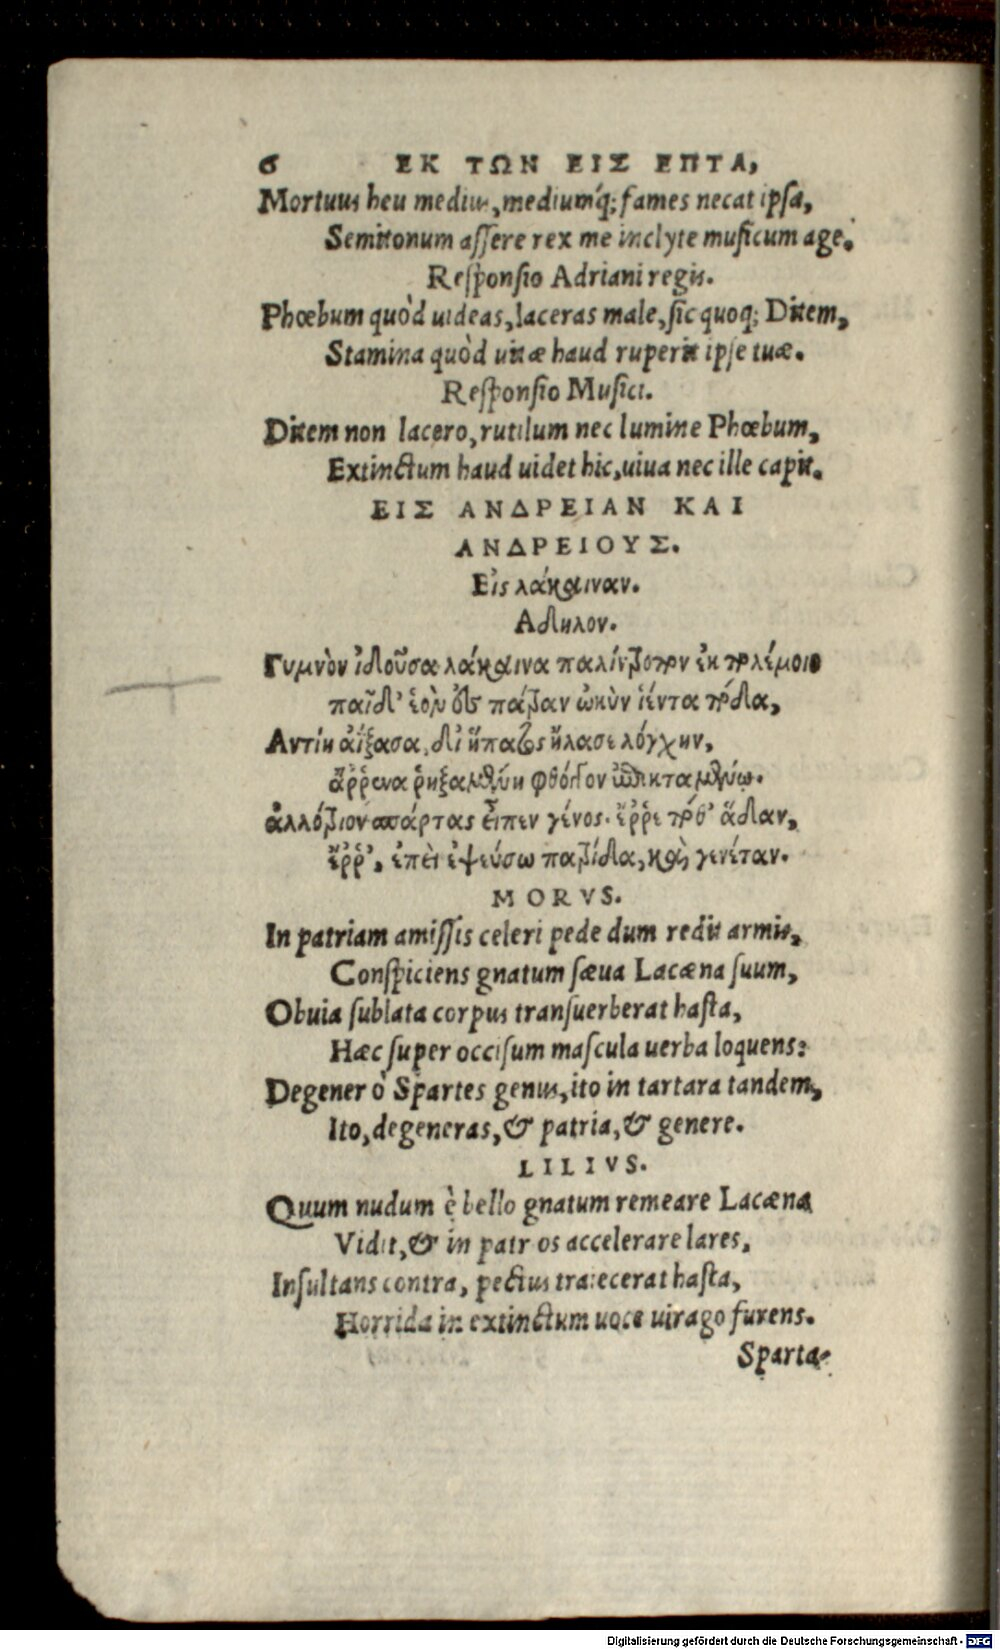 6 ΕΚ ΤΩΝ ΕΙΣ ΕΠΤΑ,
Mortuus heu medius, mediumq́; fames necat ipsa,
Semittonum assere rex me inclyte musicum age.
Responsio Adriani regis.
Phœbum quòd uideas, laceras male, sic quoq; Ditem,
Stamina quòd uitæ haud ruperit ipse tuæ.
Responsio Musici.
Ditem non lacero, rutilum nec lumine Phœbum,
Extinctum haud uidet hic, uiua nec ille capit.
ΕΙΣ ΑΝΔΡΕΙΑΝ ΚΑΙ
ΑΝΔΡΕΙΟΥΣ.
Εἰς λάκαιναν.
Αδηλον.
Γυμνὸν ἰδοῦσα λάκαινα παλίντροπον ἐκ πολέμοιο
παῖδ' ἑὸν ἐς πάτραν ὠκὺν ἱέντα πόδα,
Αντίη ἀΐξασα, δι' ἥπατος ἤλασε λόγχην,
ἄῤῥενα ῥηξαμένη φθόγγον ἐπὶ κταμένῳ.
ἀλλότριον σπάρτας εἶπεν γένος. ἔῤῥε ποθ' ἅδαν,
ἔῤῥ', ἐπεὶ ἐψεύσω πατρίδα, καὶ γενέταν.
MORVS.
In patriam amissis celeri pede dum redit armis,
Conspiciens gnatum sæua Lacæna suum,
Obuia sublata corpus transuerberat hasta,
Hæc super occisum mascula uerba loquens:
Degener ô Spartes genus, ito in tartara tandem,
Ito, degeneras, & patria, & genere.
LILIVS.
Quum nudum è bello gnatum remeare Lacæna
Vidit, & in patr os accelerare lares,
Insultans contra, pectus traiecerat hasta,
Horrida in extinctum uoce uirago furens.
Sparta-
Digitalisierung gefördert durch die Deutsche Forschungsgemeinschaft - DFG